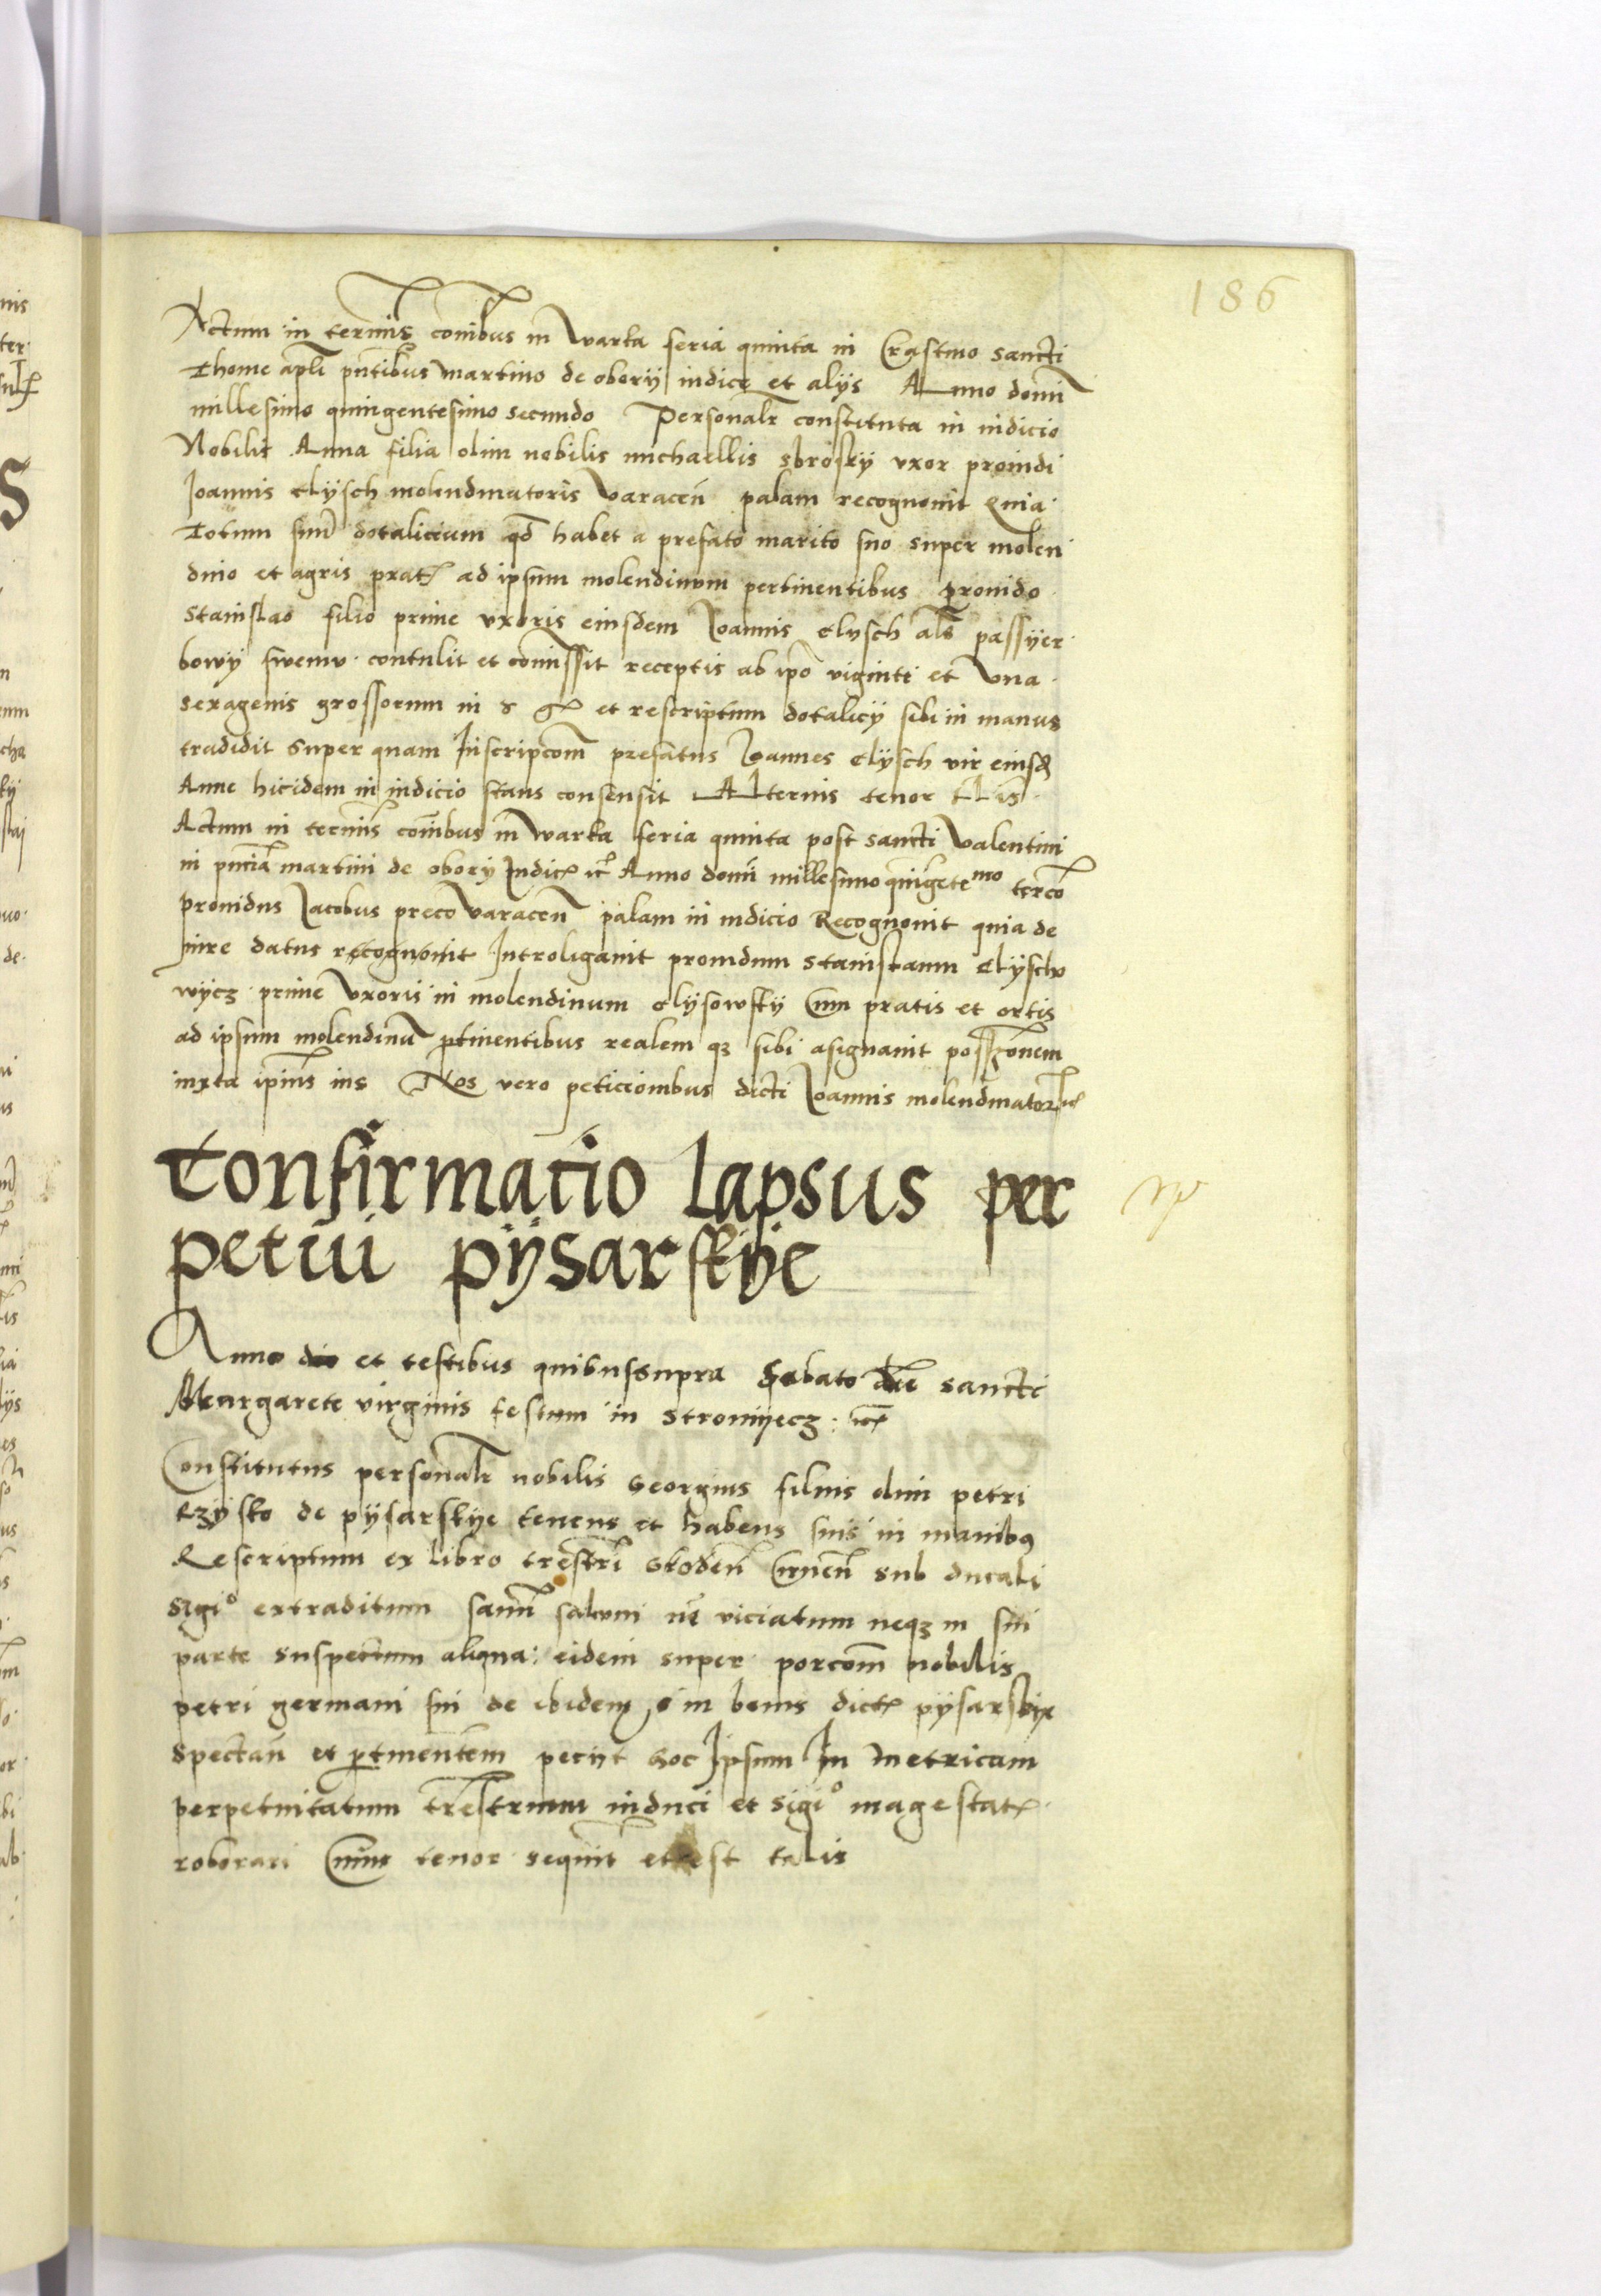 186
Actum in terminis com̄ibus in Warka feria quinta in Crastino sancti
Thome apl̄i pn̄tibus martino de obory iudice et alys Anno domi
millesimo quingentesimo secundo Personalr̄ constituta in iudicio
Nobilis Anna filia olim nobilis michaellis sbrosky vxor prouidi
Joannis Elysch molendinatoris Varacen̄ palam recognouit Quia
Totum suu̅ dotalicium qd̄ habet a prefato marito suo super molen
dino et agris prat ad ipsum molendinum pertinentibus prouido
Stanislao filio prime vxoris eiusdem Joannis Elysch al̄s passyer
bowy swemv contulit et comissit receptis ab ip̄o viginti et Vna
sexagenis grossorum in et rescriptum dotalicy sibi in manus
tradidit Super quam Inscripcom̄ prefatus Joannes Elysch vir eiusd
Anne hicidem in iudicio stans consensit Alterius tenor tl̄is
Actum in terminis com̄ibus in Warka feria quinta post sancti Valentini
in pn̄cia martini de obory Judic̄ etc̄ Anno domi millesimo qui̅gētemo terco̅
prouidus Jacobus preco Varacen̄ palam in iudicio Recognouit quia de
iure datus recognouit Introligauit prouidum Stanislaum Elyscho
wycz prime Vxoris in molendinum elysowsky Cum pratis et ortis
ad ipsum molendinu̅ ptinentibus realem qz sibi asignauit possionem
iuxta ipius̄ ius Nos vero peticionibus dicti Joannis molendinator̄ etc̄
Confirmatio lapsus per
petui pysarskye
Anno et testibus quibussupra Sabato die sancte
Margarete virginis festum in Stromyecz etc̄
Constitutus personalr̄ nobilis Georgius filius olim petri
Rzysko de pysarskye tenens et habens suis in manibus
Rescriptum ex libro tr̄estri̅ Groden̄ Cirnen̄ sub ducali
sigi° extraditum sanu̅ saluu̅ no̅ viciatum neqz in sui
parte suspectum aliqua: eidem super porcom̄ nobilis
petri germani sui de ibidem in bonis dict̄ pysarskye
spectan̄ et ptinentem pecijt hoc Ipsum In metricam
perpetuitatum tr̄estrium induci et sigi° magestat̄
roborari Cuius tenor sequit̄ et est talis